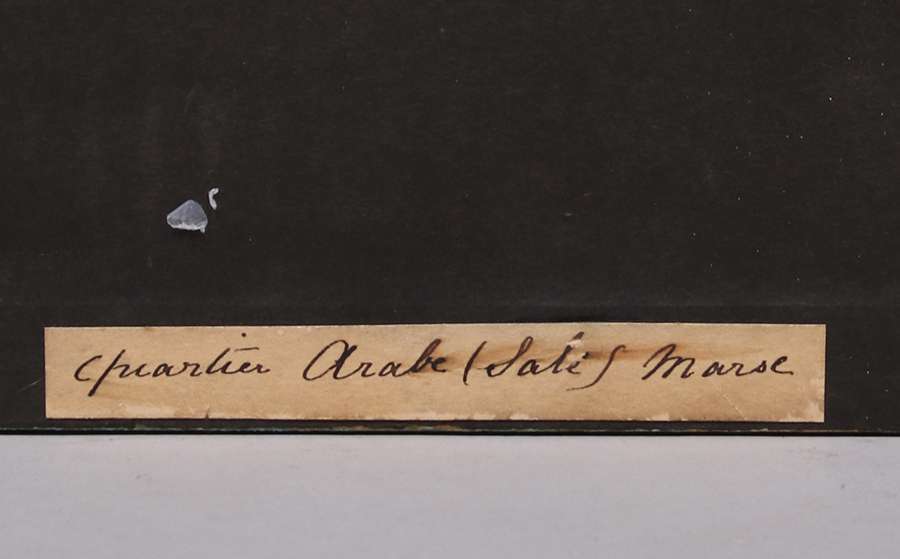 Quartier Arabe (Salé) Maroc